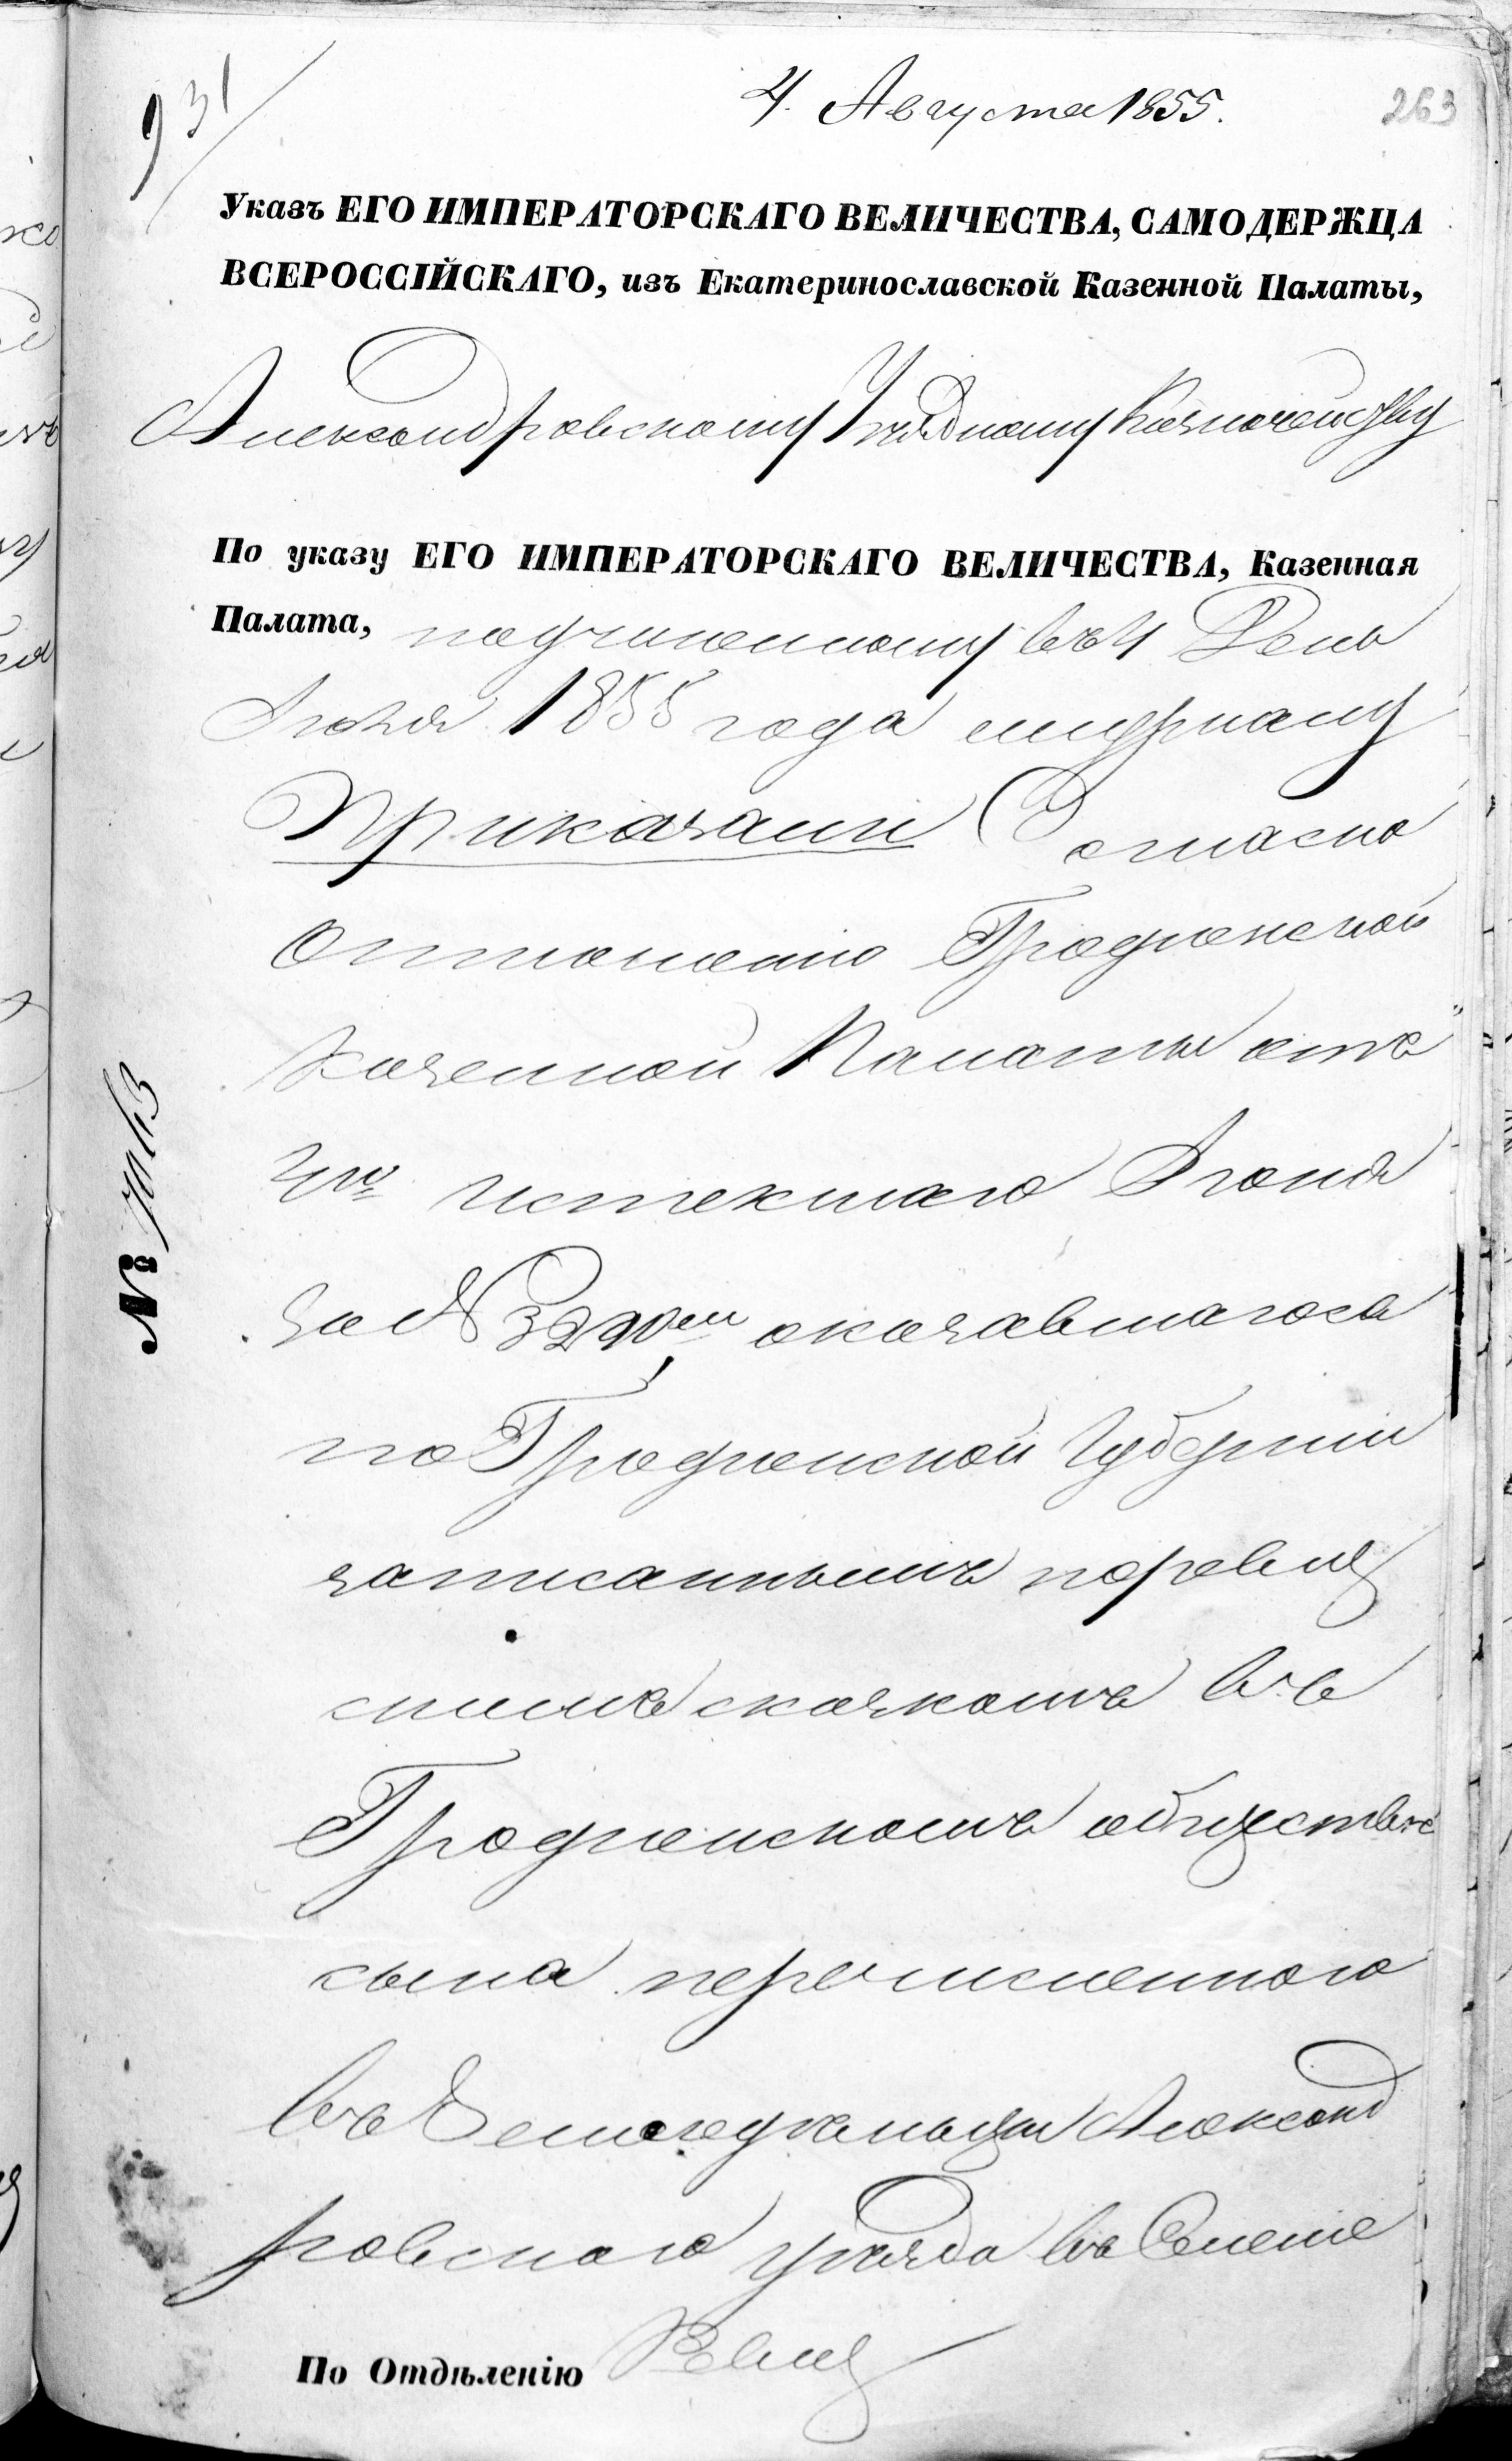 931
4. Августа 1855.
263
Указъ ЕГО ИМПЕРАТОРСКАГО ВЕЛИЧЕСТВА, САМОДЕРЖЦА
ВСЕРОССІЙСКАГО, изъ Екатеринославской Казенной Палаты,
Александровскому Уѣздному Казначейству
По указу ЕГО ИМПЕРАТОРСКАГО ВЕЛИЧЕСТВА, Казенная
Палата, подчиненному въ 4 День
Іюля 1855 года журналу
Приказали Согласно
отношенію Гродненской
Казенной Палаты отъ
4го истекшаго Іюня
за № оказавшагося
по Гродненской Губерніи
записаннымъ по ревиз
скимъ сказкамъ въ
Гродненскомъ обществѣ
сына перечисленного
въ Земледѣльцы Александ
ровского уѣзда въ Селеніе
№
По Отдѣленію Ревиз